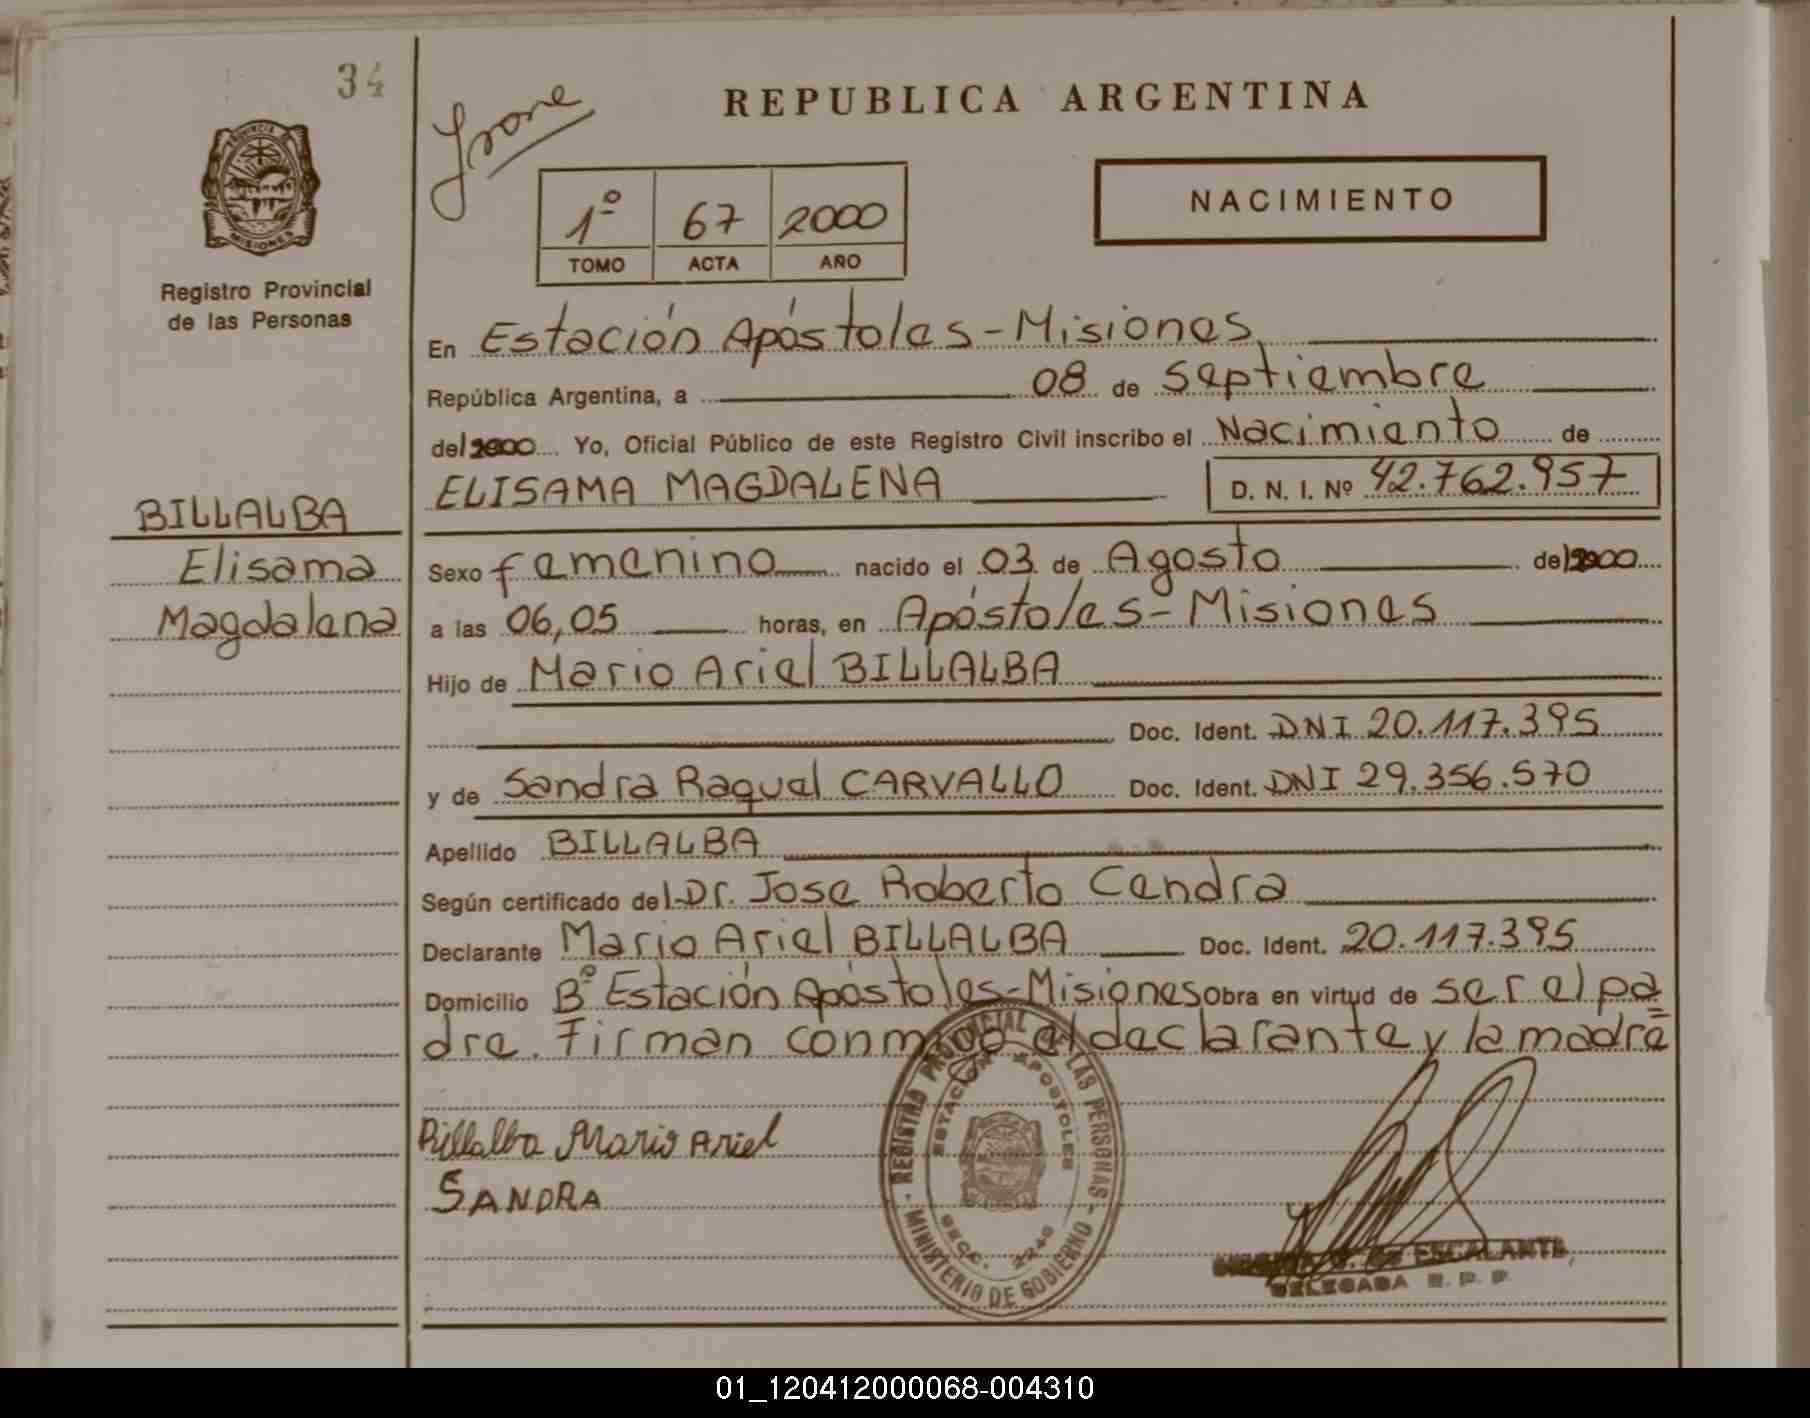 34
REPUBLICA ARGENTINA
PROVINCIA DE
MISIONES
Registro Provincial
de las Personas
1º 67 2000
TOMO ACTA AÑO
NACIMIENTO
En Estación Apóstoles - Misiones
República Argentina, a 08 de septiembre
del 2000 Yo, Oficial Público de este Registro Civil inscribo el Nacimiento de
ELISAMA MAGDALENA D. N. I. Nº 42.762.957
BILLALBA
Elisama
Magdalena
Sexo femenino nacido el 03 de Agosto del 2000
a las 06,05 horas, en Apóstoles - Misiones
Hijo de Mario Ariel BILLALBA
Doc. Ident. DNI 20.117.395
y de Sandra Raquel CARVALLO Doc. Ident. DNI 29.356.570
Apellido BILLALBA
Según certificado del Dr. Jose Roberto Cendra
Declarante Mario Ariel BILLALBA Doc. Ident. 20.117.395
Domicilio Bº Estación Apóstoles - Misiones Obra en virtud de ser el pa
dre. Firman conmigo el declarante y la madre
Billalba Mario Ariel
SANDRA
REGISTRO PROVINCIAL DE LAS PERSONAS
MINISTERIO DE GOBIERNO
ESTACION APOSTOLES
SECC. 2240
DE ESCALANTE
DELEGADA R. P. P.
01_120412000068-004310